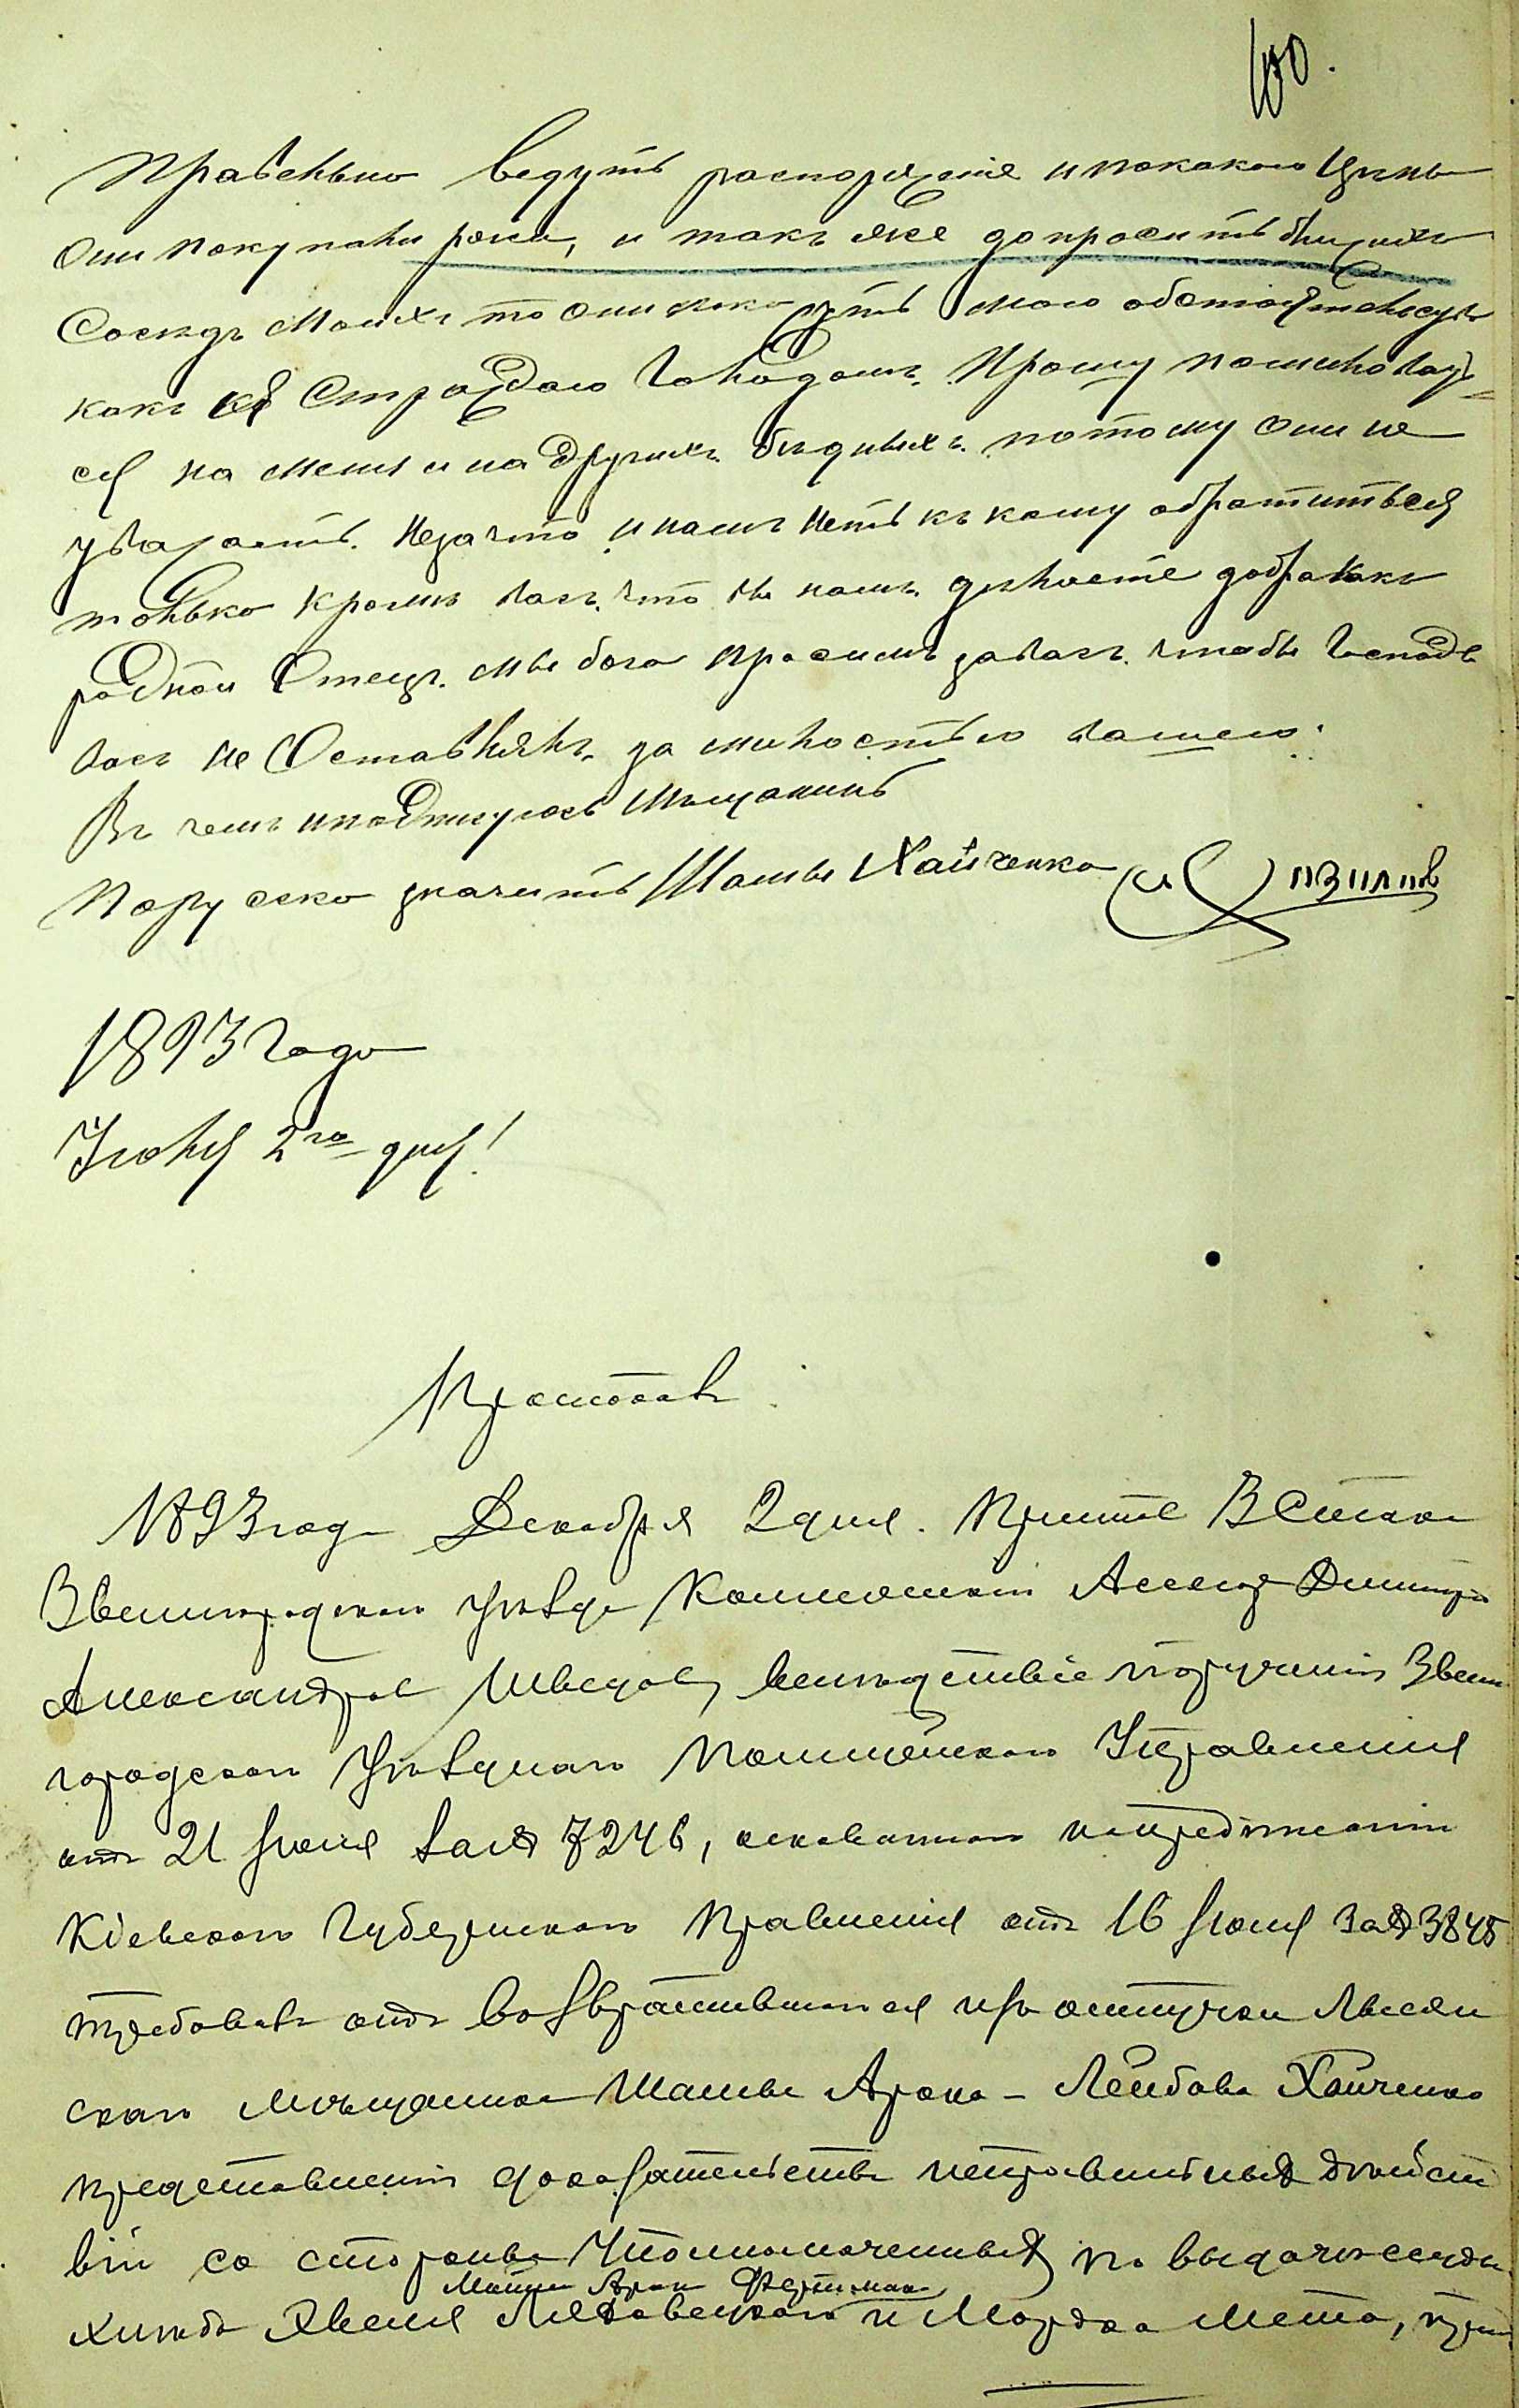 100.
Правельно ведутъ распоряженіе и покакою цѣны
они покупали рожи, и такъ же допросить ближихъ
Соседъ Моихъ то они покажутъ мою
какъ я Страждаю Голодомъ. Прошу помиловать
ся на меня и на Другихъ бѣдныхъ. потому они не
уважаютъ. Незачто и намъ Нетъ къ кому обратиться
только кромѣ васъ. что вы намъ. дѣлаете добра какъ
родной Отецъ. мы бога просимъ за васъ. чтобы Господь
васъ не Оставлялъ. за милостью вашею.
Въ чемъ и подпишуюсь Мѣщанинъ
Порусско значитъ Шамы Хайченко
1893 Года
Іюля 2го дня!
Протоколъ
1893 года Декабря 2 дня. Приставъ 3 Стана
Звенигородскаго уѣзда Коллежскій Ассесоръ Дмитрій
Александровъ Шведовъ, вслѣдствіе порученія Звени
городскаго Уѣзднаго Полицейскаго Управленія
отъ 21 Іюля за № 7246, основаннаго на предложеніи
Кіевскаго Губернскаго Правленія отъ 16 Іюля за № 3848
требовалъ отъ Возвратившагося изъ отлучки Лысян
скаго мѣщанина Шамы Арона-Лейбова Хайченко
представленія доказательствъ неправильныхъ дѣйст
вій со стороны Уполномоченныхъ по выдачѣ ссуды
хлѣба и Мордка Мета, при